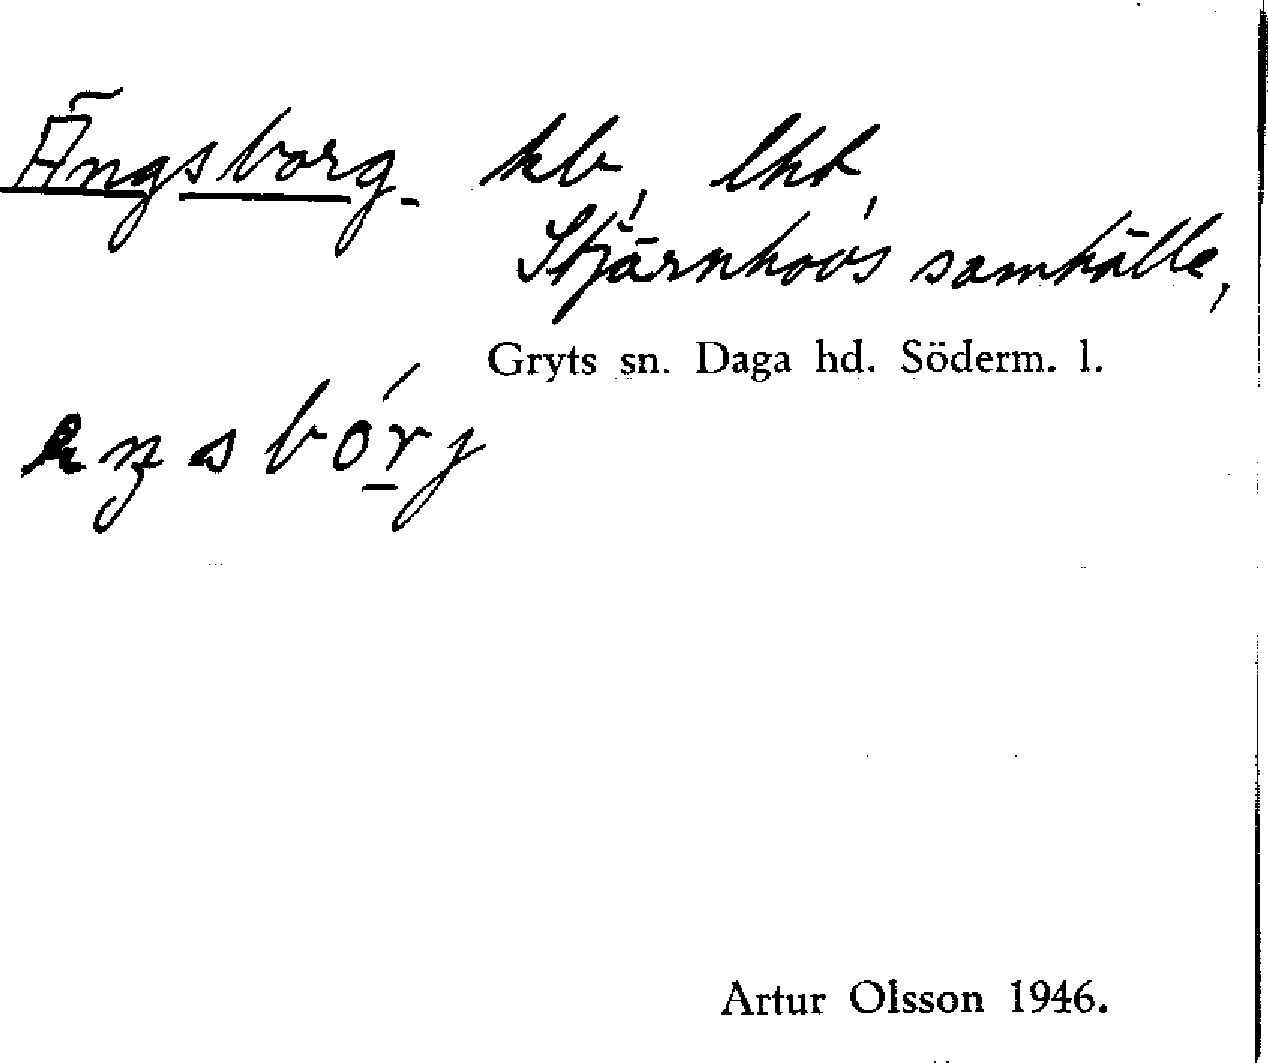 Ängsborg. kb, lht,
Stjärnhovs samhälle,
Gryts sn. Daga hd. Söderm. l.
Artur Olsson 1946.